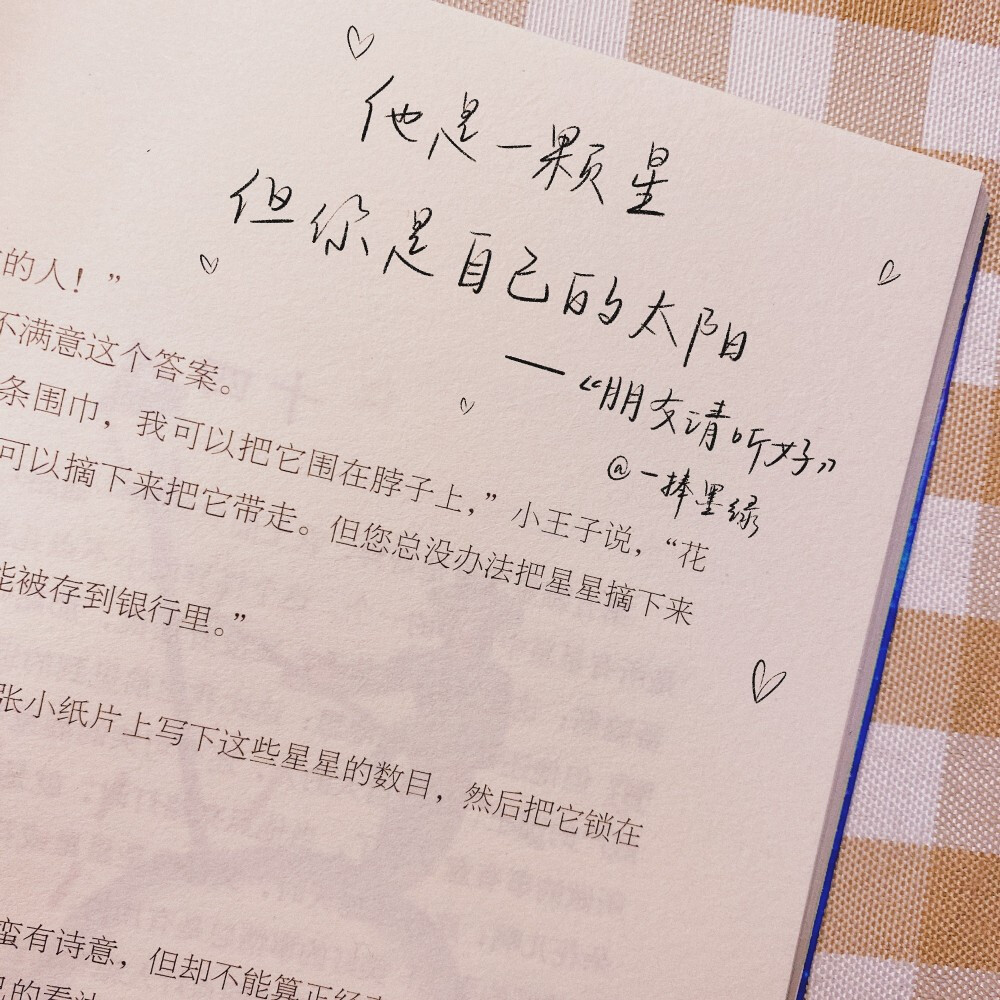 他是一颗星
但你是自己的太阳
——“朋友请听好”
@一捧墨绿
的人！”
不满意这个答案。
条围巾，我可以把它围在脖子上，”小王子说，“花
可以摘下来把它带走。但您总没办法把星星摘下来
能被存到银行里。”
张小纸片上写下这些星星的数目，然后把它锁在
蛮有诗意，但却不能算正经
己的看法